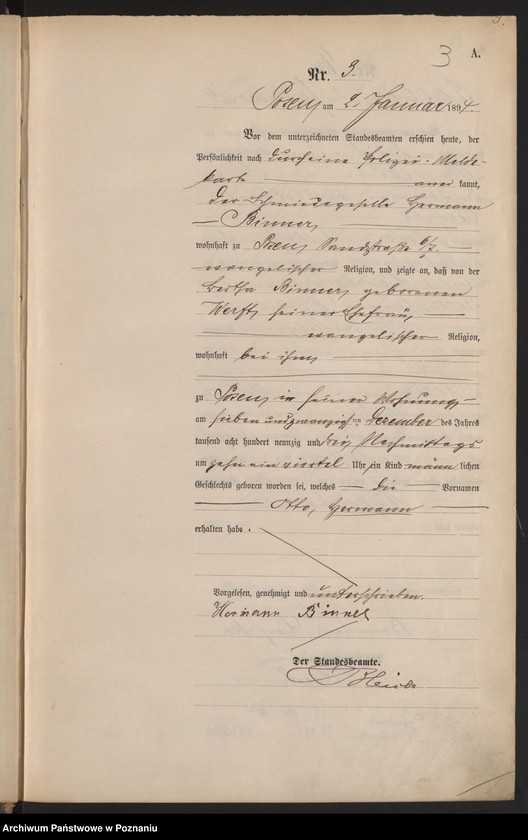 3
A.
Nr. 3.
Posen, am 2. Januar 1894.
Vor dem unterzeichneten Standesbeamten erschien heute, der
Persönlichkeit nach durch eine Polizei-Melde-
karte anerkannt,
der Schmiedegeselle Hermann
Binner,
wohnhaft zu Posen, Sandstraße 6/7
evangelischer Religion, und zeigte an, daß von der
Bertha Binner, geborenen
Werft, seiner Ehefrau,
evangelischer Religion,
wohnhaft bei ihm,
zu Posen, in seiner Wohnung,
am sieben und zwanzigsten Dezember des Jahres
tausend acht hundert neunzig und drei, Nachmittags
um zehn ein viertel Uhr, ein Kind männlichen
Geschlechts geboren worden sei, welches die Vornamen
Otto, Hermann
erhalten habe.
Vorgelesen, genehmigt und unterschrieben.
Hermann Binner
Der Standesbeamte.
Archiwum Państwowe w Poznaniu